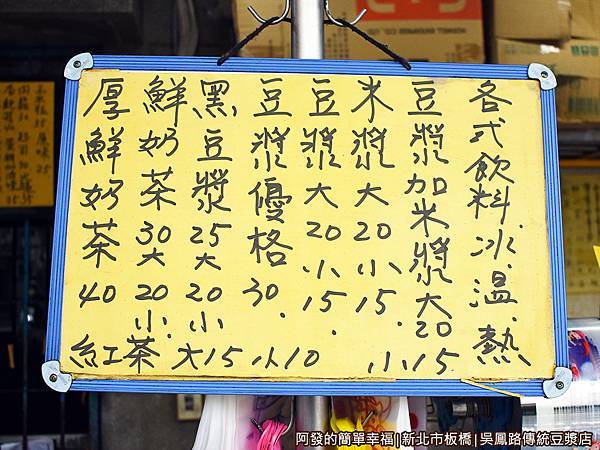 各式飲料.冰.溫.熱
豆漿加米漿大20
小15
米漿大20小15.
豆漿大20小15.
豆漿優格30.
黑豆漿25大20小
鮮奶茶30大20小.
厚鮮奶茶40
紅茶大15小10
阿發的簡單幸福|新北市板橋|吳鳳路傳統豆漿店